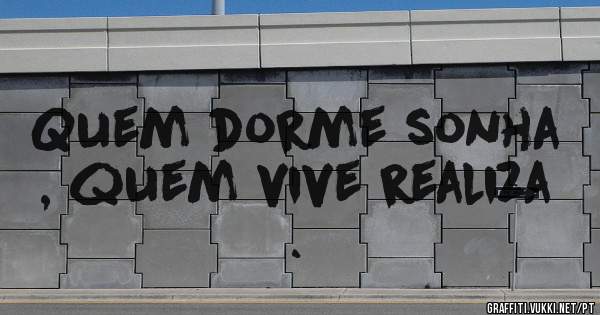 QUEM DORME SONHA
, QUEM VIVE REALIZA
.
GRAFFITI.VUKKI.NET/PT